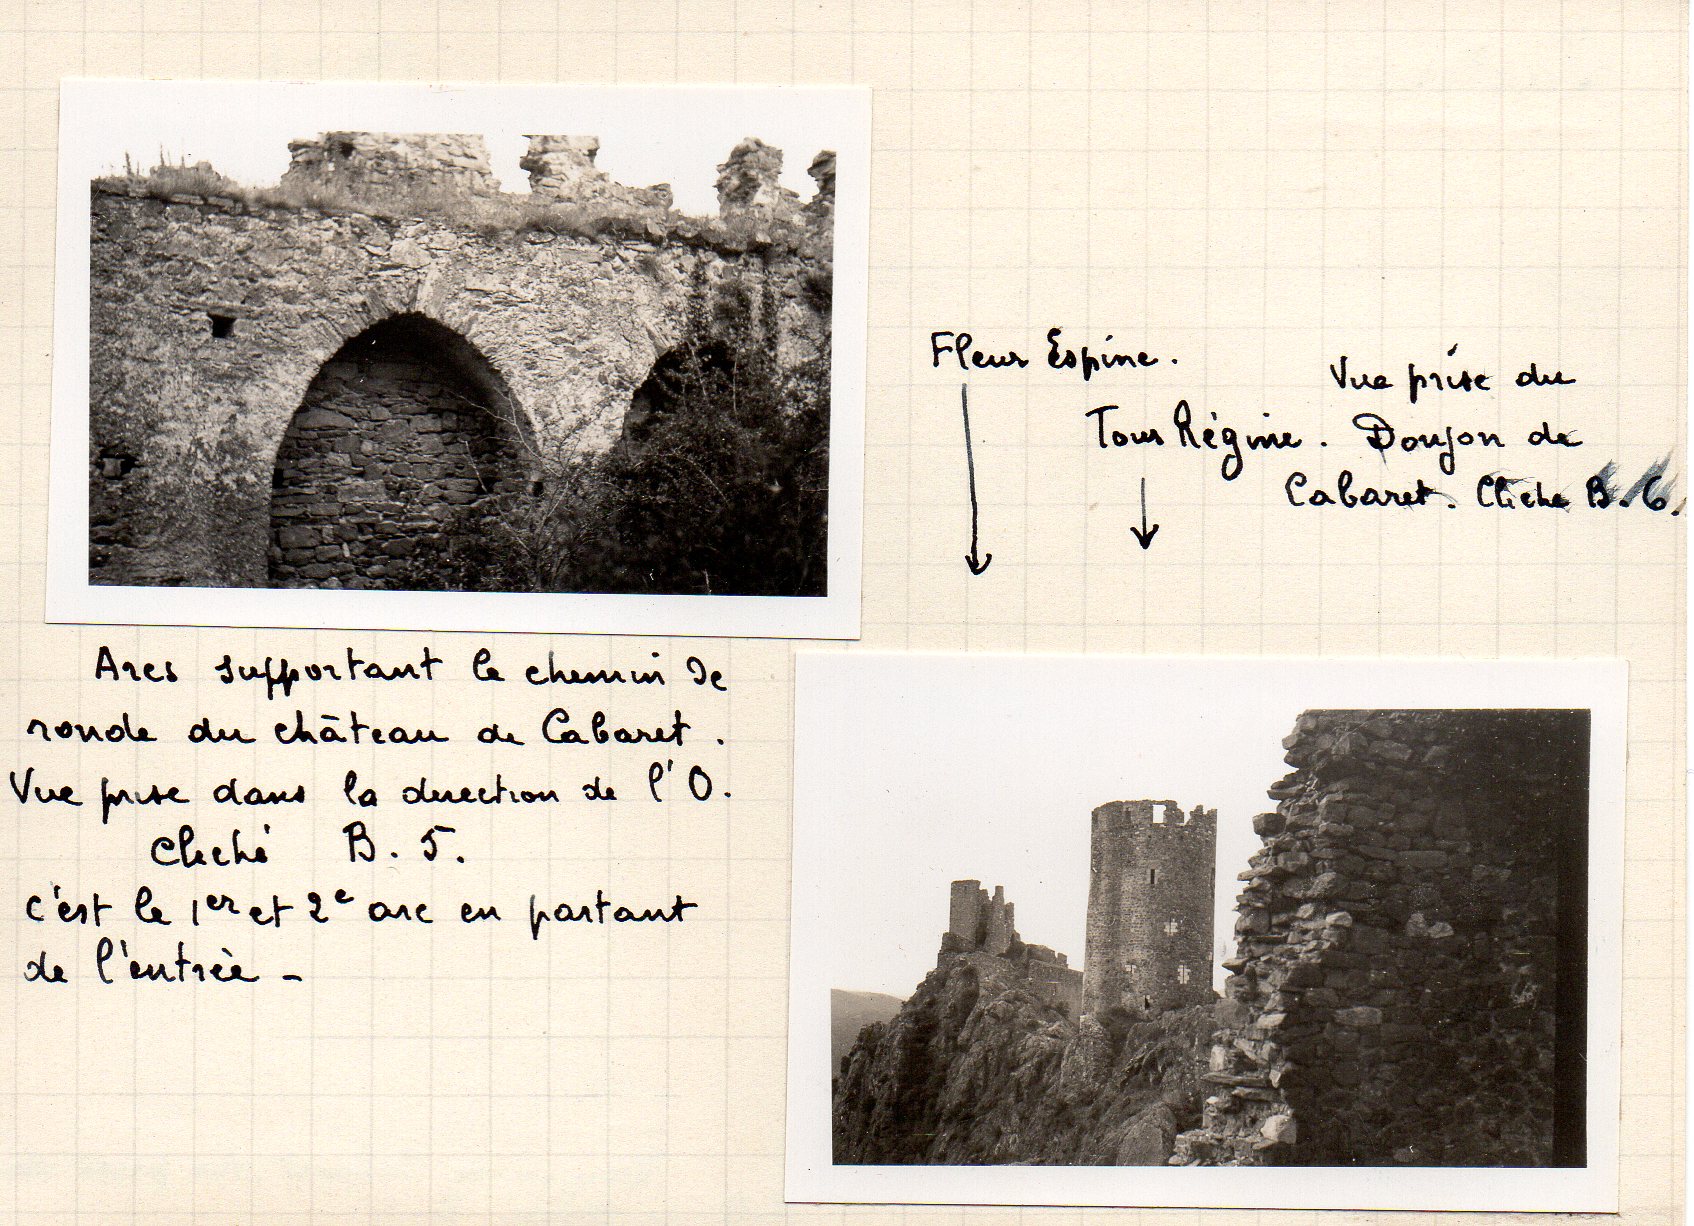 Fleur Espine.
Tour Régine.
Vue prise du
Donjon de
Cabaret. Cliché B.6.
Arcs supportant le chemin de
ronde du château de Cabaret.
Vue prise dans la direction de l'O.
Cliché B.5.
c'est le 1er et 2e arc en partant
de l'entrée -